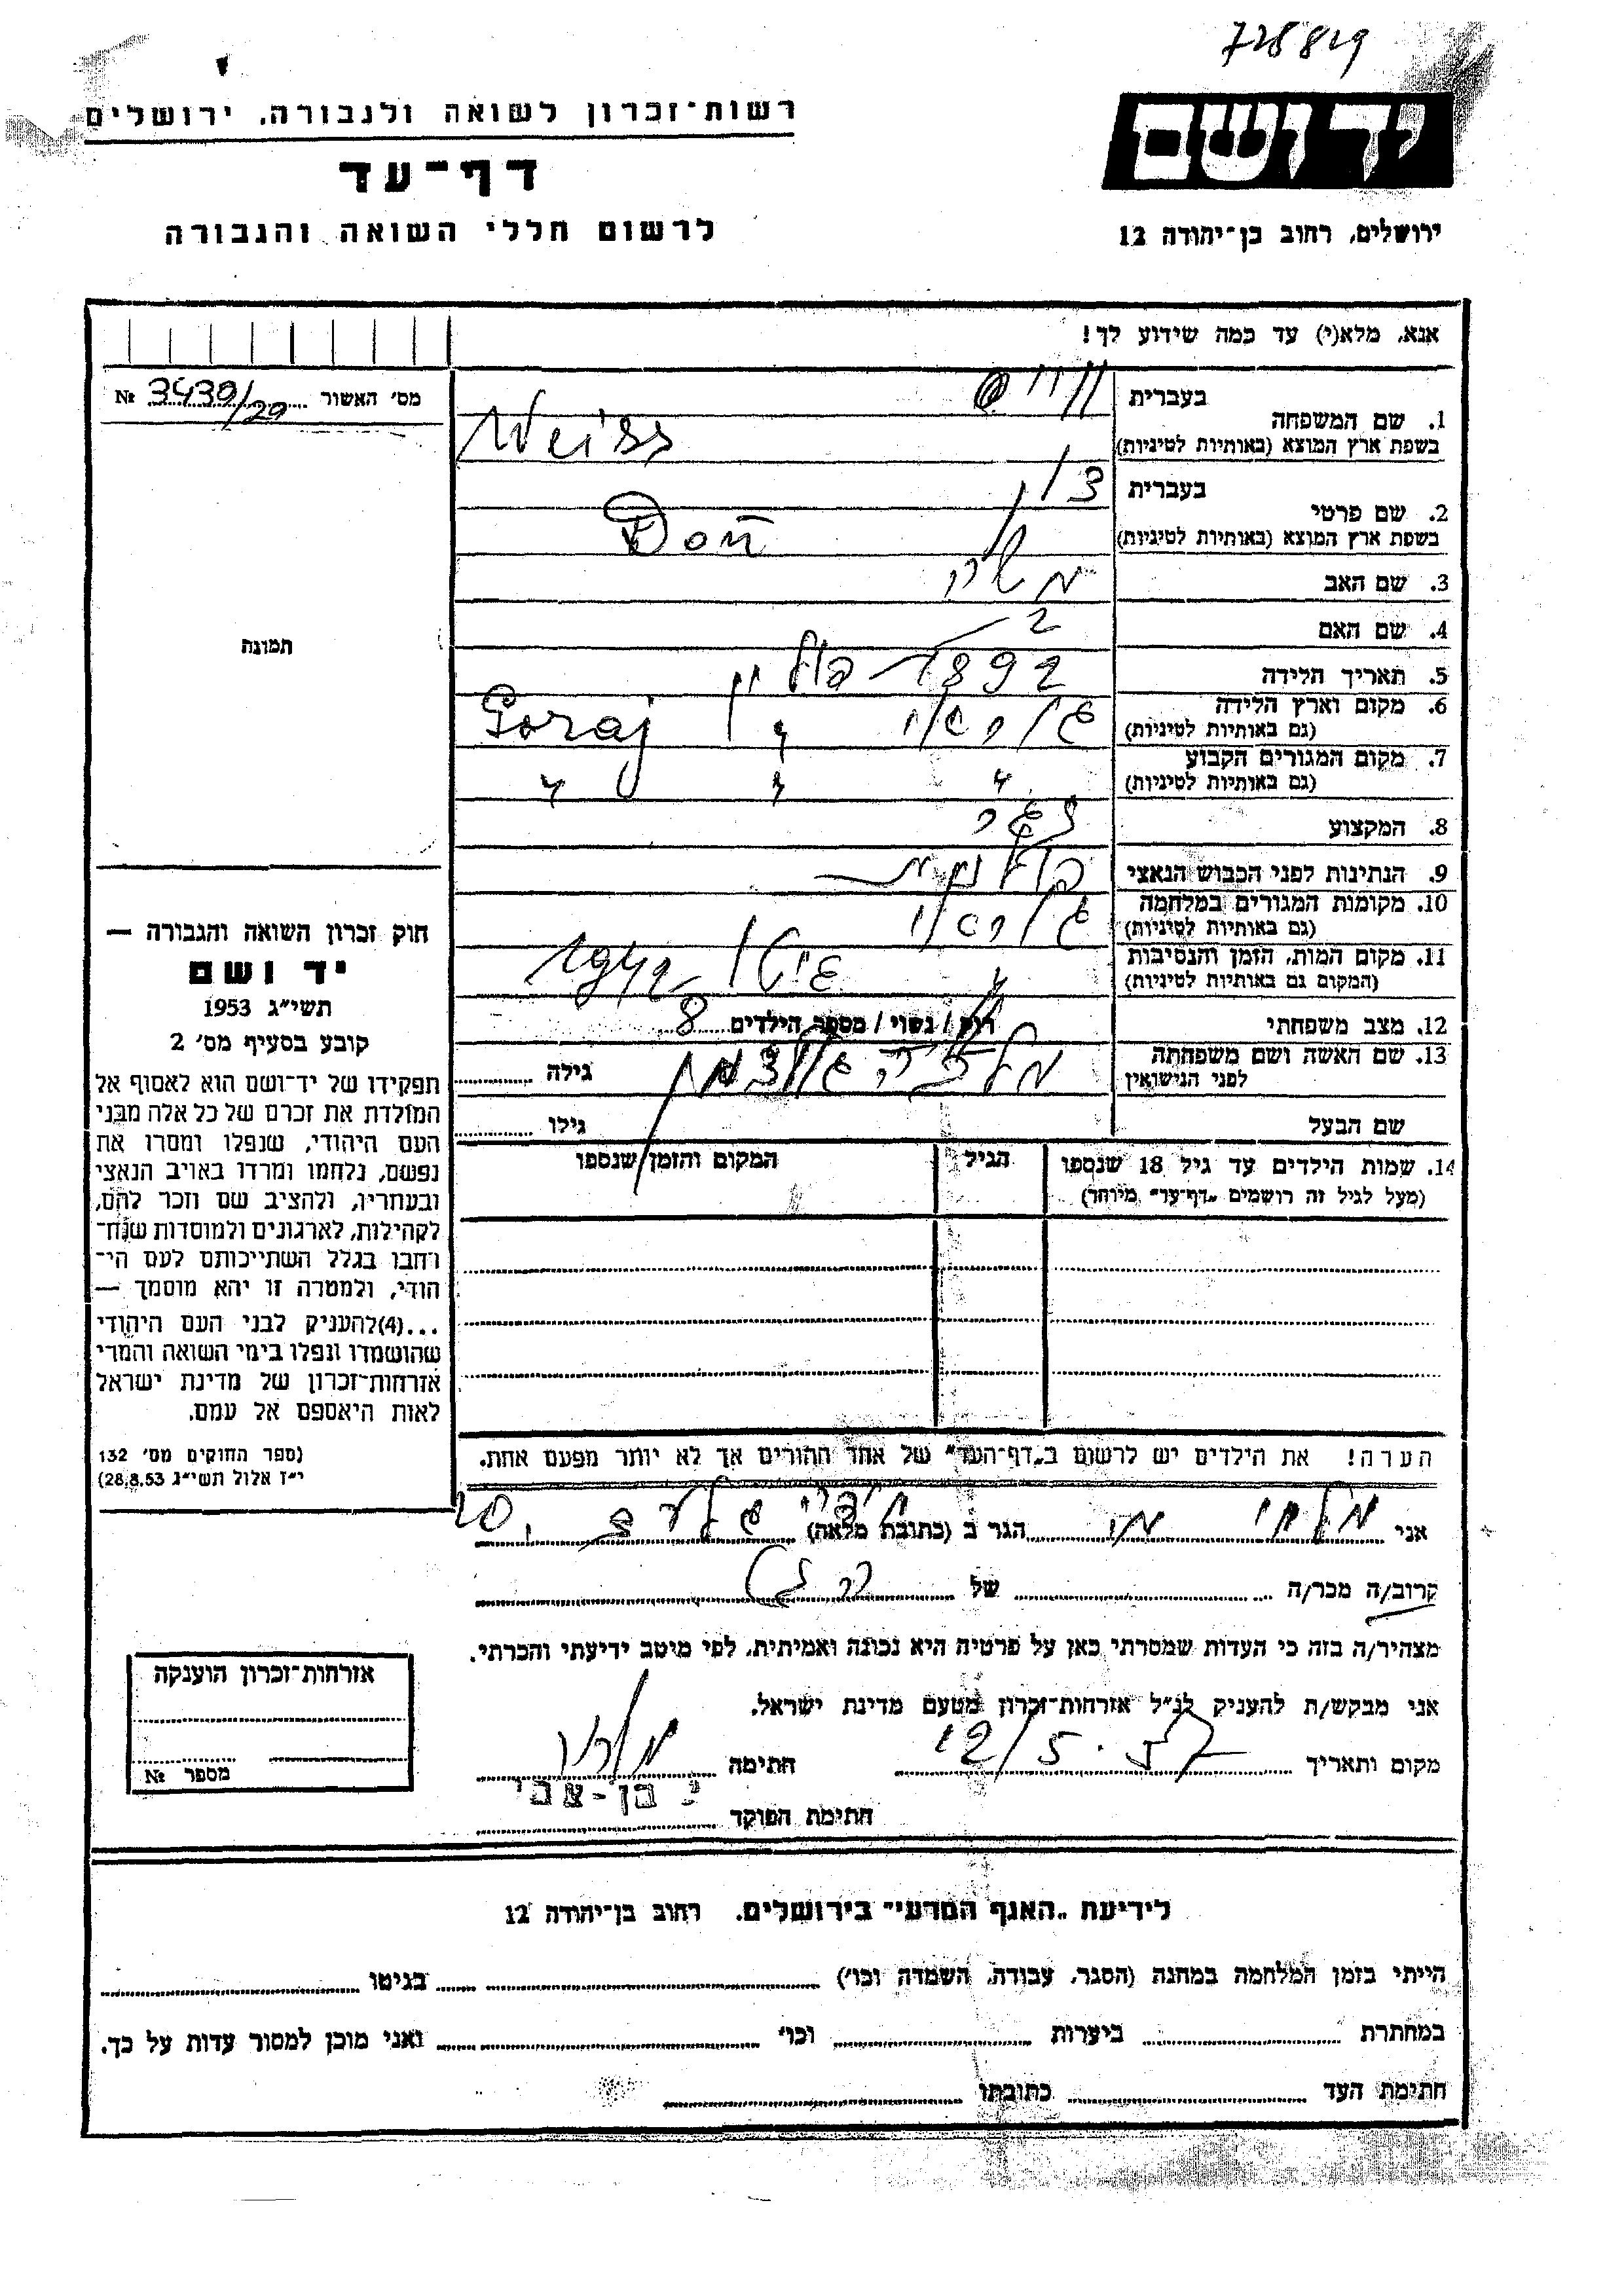 728829
רשות־זכרון לשואה ולגבורה, ירושלים
דף־עד
לרשום חללי השואה והגבורה
יד ושם
ירושלים, רחוב בן־יהודה 12
אנא, מלא(י) עד כמה שידוע לך!
מס׳ האשור 3439/20 №
תמונה
חוק זכרון השואה והגבורה —
יד ושם
תשי״ג 1953
קובע בסעיף מס׳ 2
תפקידו של יד־ושם הוא לאסוף אל
המולדת את זכרם של כל אלה מבני
העם היהודי, שנפלו ומסרו את
נפשם, נלחמו ומרדו באויב הנאצי
ובעוזריו, ולהציב שם וזכר להם,
לקהילות, לארגונים ולמוסדות שנח־
רחבו בגלל השתייכותם לעם הי־
הודי, ולמטרה זו יהא מוסמך —
...(4)להעניק לבני העם היהודי
שהושמדו ונפלו בימי השואה והמרי
אזרחות־זכרון של מדינת ישראל
לאות היאספם אל עמם.
(ספר החוקים מס׳ 132
י״ז אלול תשי״ג 28.8.53)
1. שם המשפחה בעברית ווייס
בשפת ארץ המוצא (באותיות לטיניות) Weiss
2. שם פרטי בעברית דון
בשפת ארץ המוצא (באותיות לטיניות) Don
3. שם האב משה
4. שם האם
5. תאריך הלידה 1892
6. מקום וארץ הלידה
(גם באותיות לטיניות) Goraj
7. מקום המגורים הקבוע
(גם באותיות לטיניות) " " "
8. המקצוע
9. הנתינות לפני הכבוש הנאצי פולנית
10. מקומות המגורים במלחמה
(גם באותיות לטיניות)
11. מקום המות, הזמן והנסיבות
(המקום גם באותיות לטיניות) 1942
12. מצב משפחתי רווק / נשוי / מספר הילדים 8
13. שם האשה ושם משפחתה
לפני הנישואין מלכה גולדמן גילה
שם הבעל גילו
14. שמות הילדים עד גיל 18 שנספו הגיל המקום והזמן שנספו
(מעל לגיל זה רושמים „דף־עד״ מיוחד)
הערה! את הילדים יש לרשום ב„דף־העד״ של אחד ההורים אך לא יותר מפעם אחת.
אני הגר ב (כתובת מלאה)
קרוב/ה מכר/ה של
מצהיר/ה בזה כי העדות שמסרתי כאן על פרטיה היא נכונה ואמיתית, לפי מיטב ידיעתי והכרתי.
אני מבקש/ת להעניק לנ״ל אזרחות־זכרון מטעם מדינת ישראל.
מקום ותאריך 12/5.57 חתימה
י. בן-צבי
חתימת הפוקד
אזרחות־זכרון הוענקה
מספר №
לידיעת „האגף המדעי״ בירושלים, רחוב בן־יהודה 12
הייתי בזמן המלחמה במחנה (הסגר, עבודה, השמדה וכו׳) בגיטו
במחתרת ביערות וכו׳ ואני מוכן למסור עדות על כך.
חתימת העד כתובתו